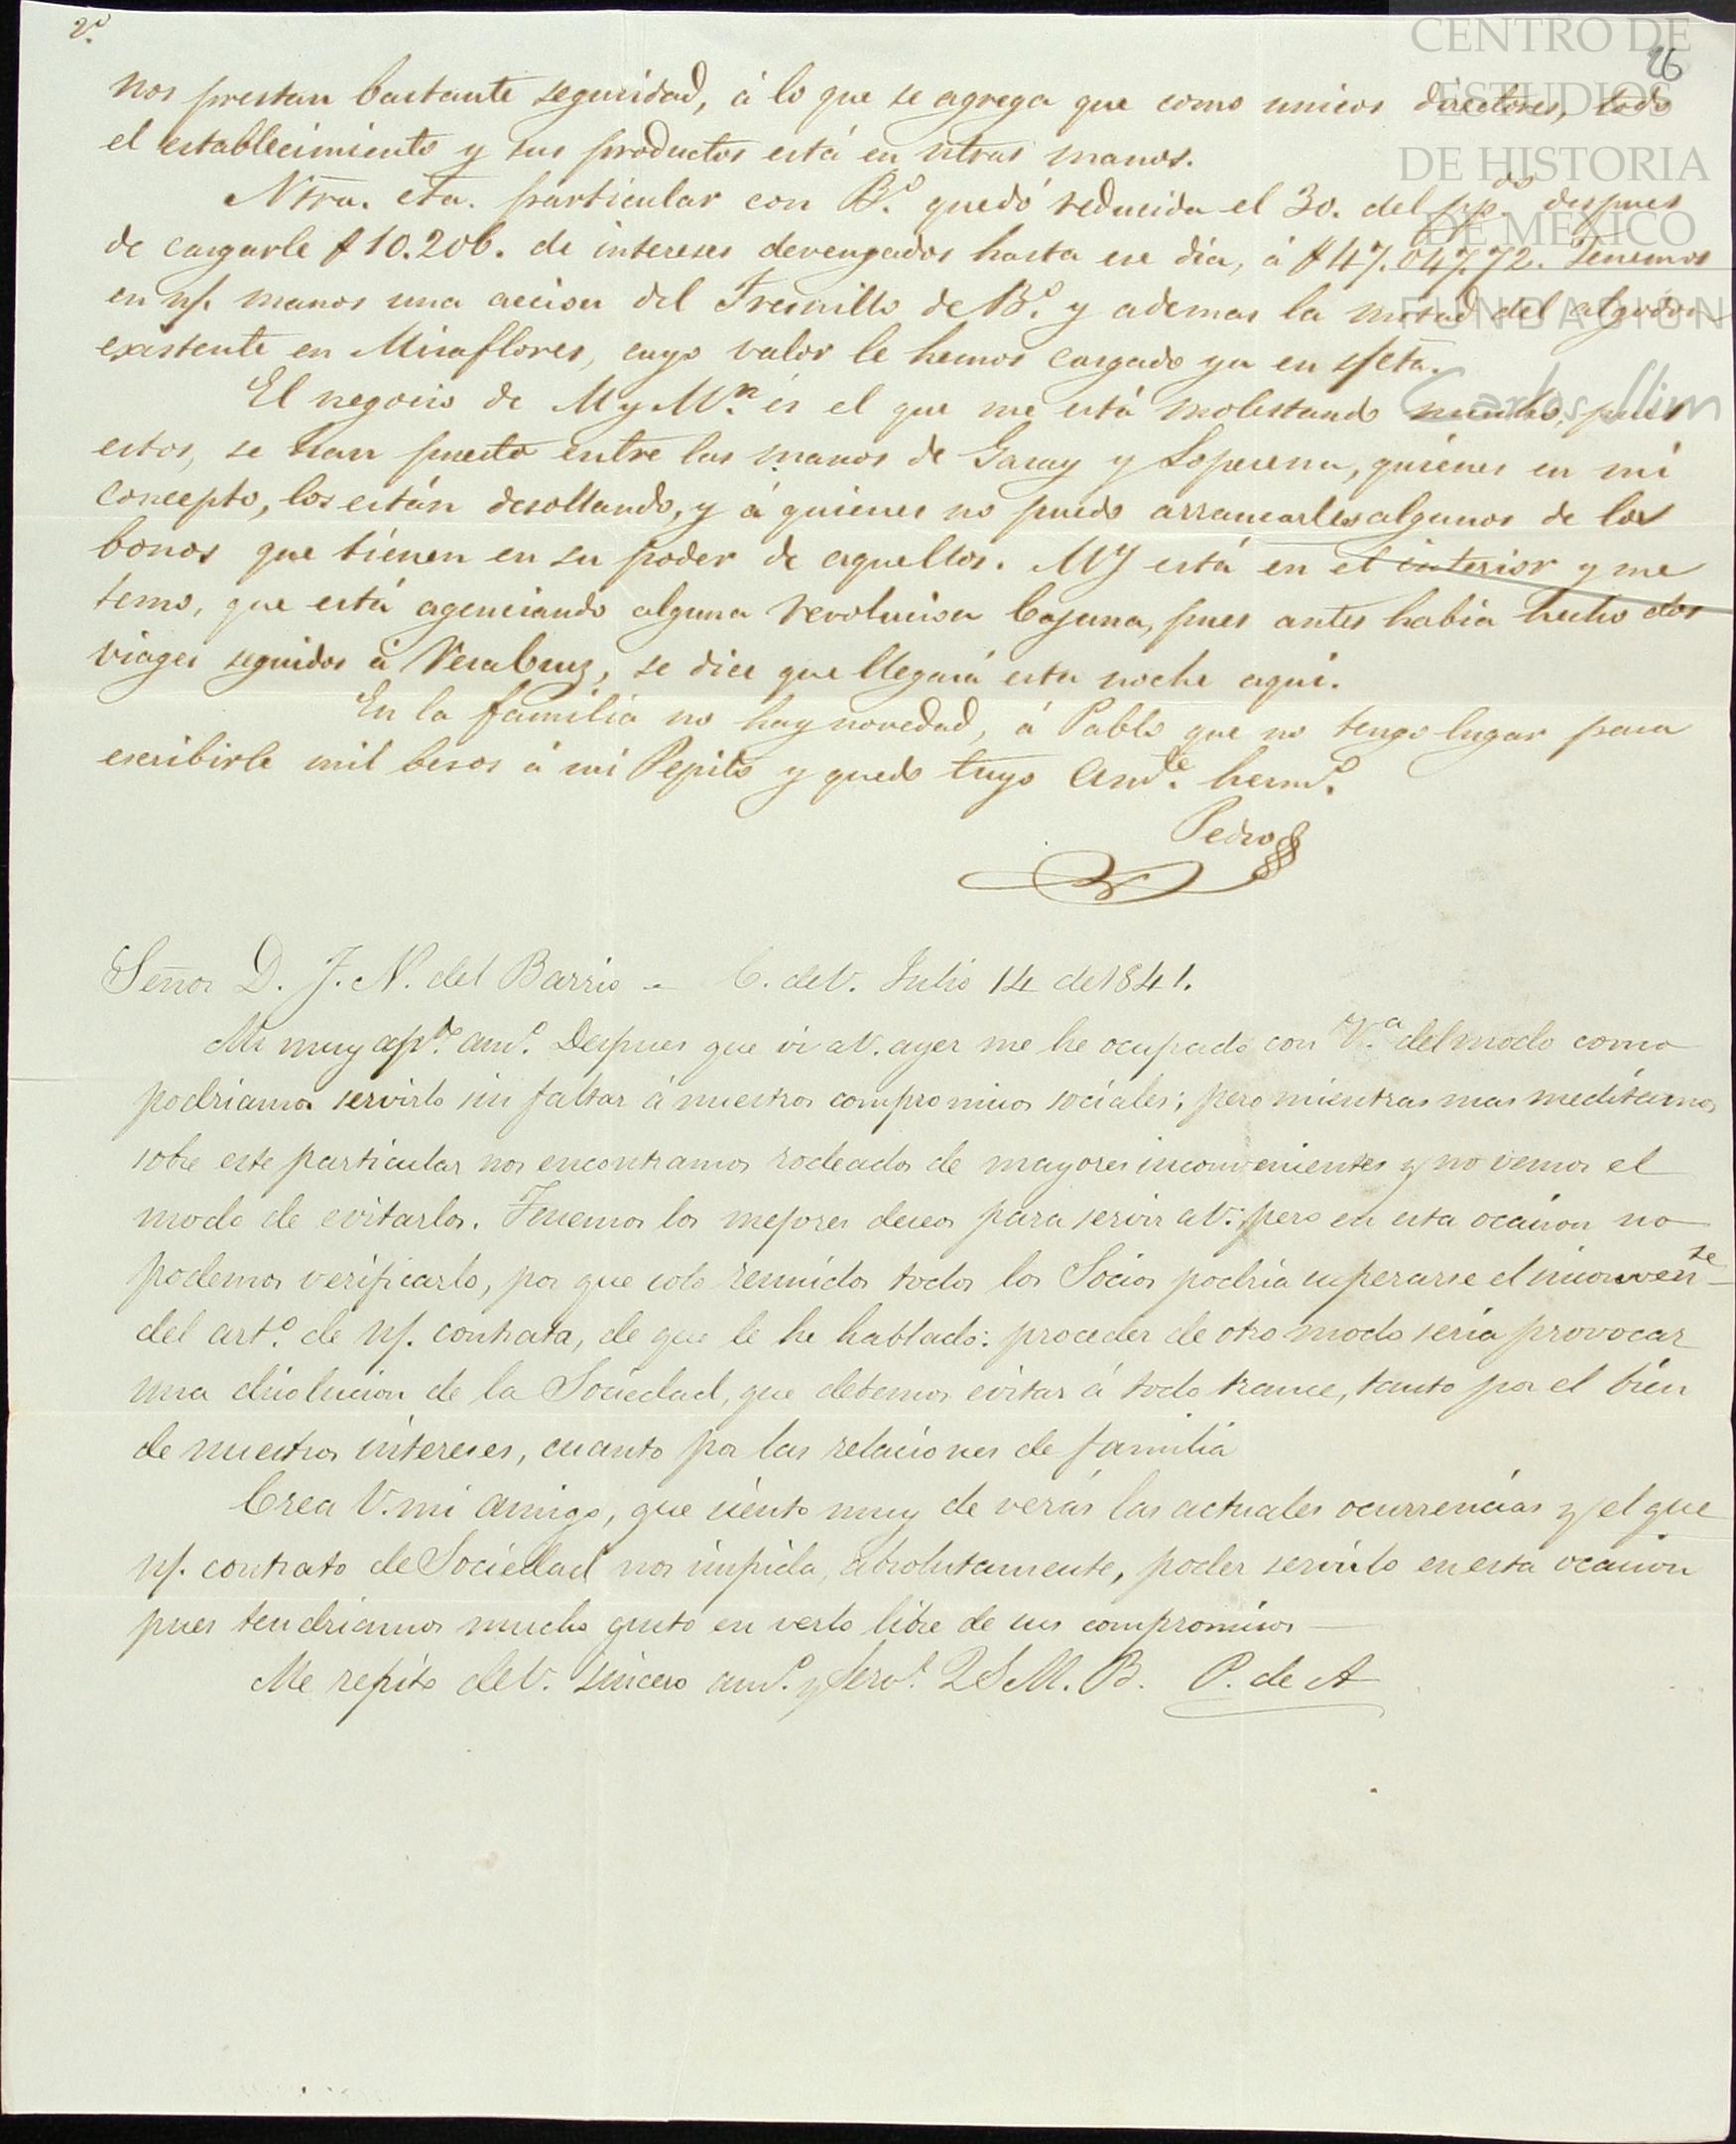 2º
26
CENTRO DE
ESTUDIOS
DE HISTORIA
DE MÉXICO
FUNDACIÓN
Carlos Slim
nos prestan bastante seguridad, á lo que se agrega que como unicos directores, todo
el establecimiento y sus productos está en ntras manos.
Ntra. cta. particular con B.º quedó reducida el 30. del pp.do despues
de cargarle $10.206. de intereses devengados hasta ese dia, á $47.047.72. Tenemos
en n/. manos una accion del Fresnillo de B.º y ademas la mitad del algodon
existente en Miraflores, cuyo valor le hemos cargado ya en s/cta.
El negocio de M y M.n es el que me está molestando mucho, pues
estos, se han puesto entre las manos de Garay y Loperena, quienes en mi
concepto, los están desollando, y á quienes no puedo arrancarles algunos de los
bonos que tienen en su poder de aquellos. MJ está en el interior y me
temo, que está agenciando alguna revolucion bajuna, pues antes habia hecho dos
viages seguidos á Veracruz, se dice que llegará esta noche aquí.
En la familia no hay novedad, á Pablo que no tengo lugar para
escribirle mil besos á mi Pepito y quedo tuyo am.te herm.º
Pedro
Señor D. J. N. del Barrio - C. de V. Julio 14 de 1841.
Mi muy ap.do am.º Despues que vi a V. ayer me he ocupado con V.a del modo como
podriamos servirlo sin faltar á nuestros compromisos sociales; pero mientras mas meditamos
sobre este particular nos encontramos rodeados de mayores inconvenientes y no vemos el
modo de evitarlos. Tenemos los mejores deseos para servir a V. pero en esta ocasion no
podemos verificarlo, por que solo reunidos todos los Socios podria superarse el inconven.te
del art.º de n/. contrata, de que le he hablado: proceder de otro modo seria provocar
una disolucion de la Sociedad, que debemos evitar á todo trance, tanto por el bien
de nuestros intereses, cuanto por las relaciones de familia
Crea V. mi amigo, que siento muy de veras las actuales ocurrencias y el que
n/. contrato de Sociedad nos impida, absolutamente, poder servirlo en esta ocasion
pues tendriamos mucho gusto en verlo libre de sus compromisos
Me repito de V. sincero am.º y Serv.r Q S M. B. P. de A